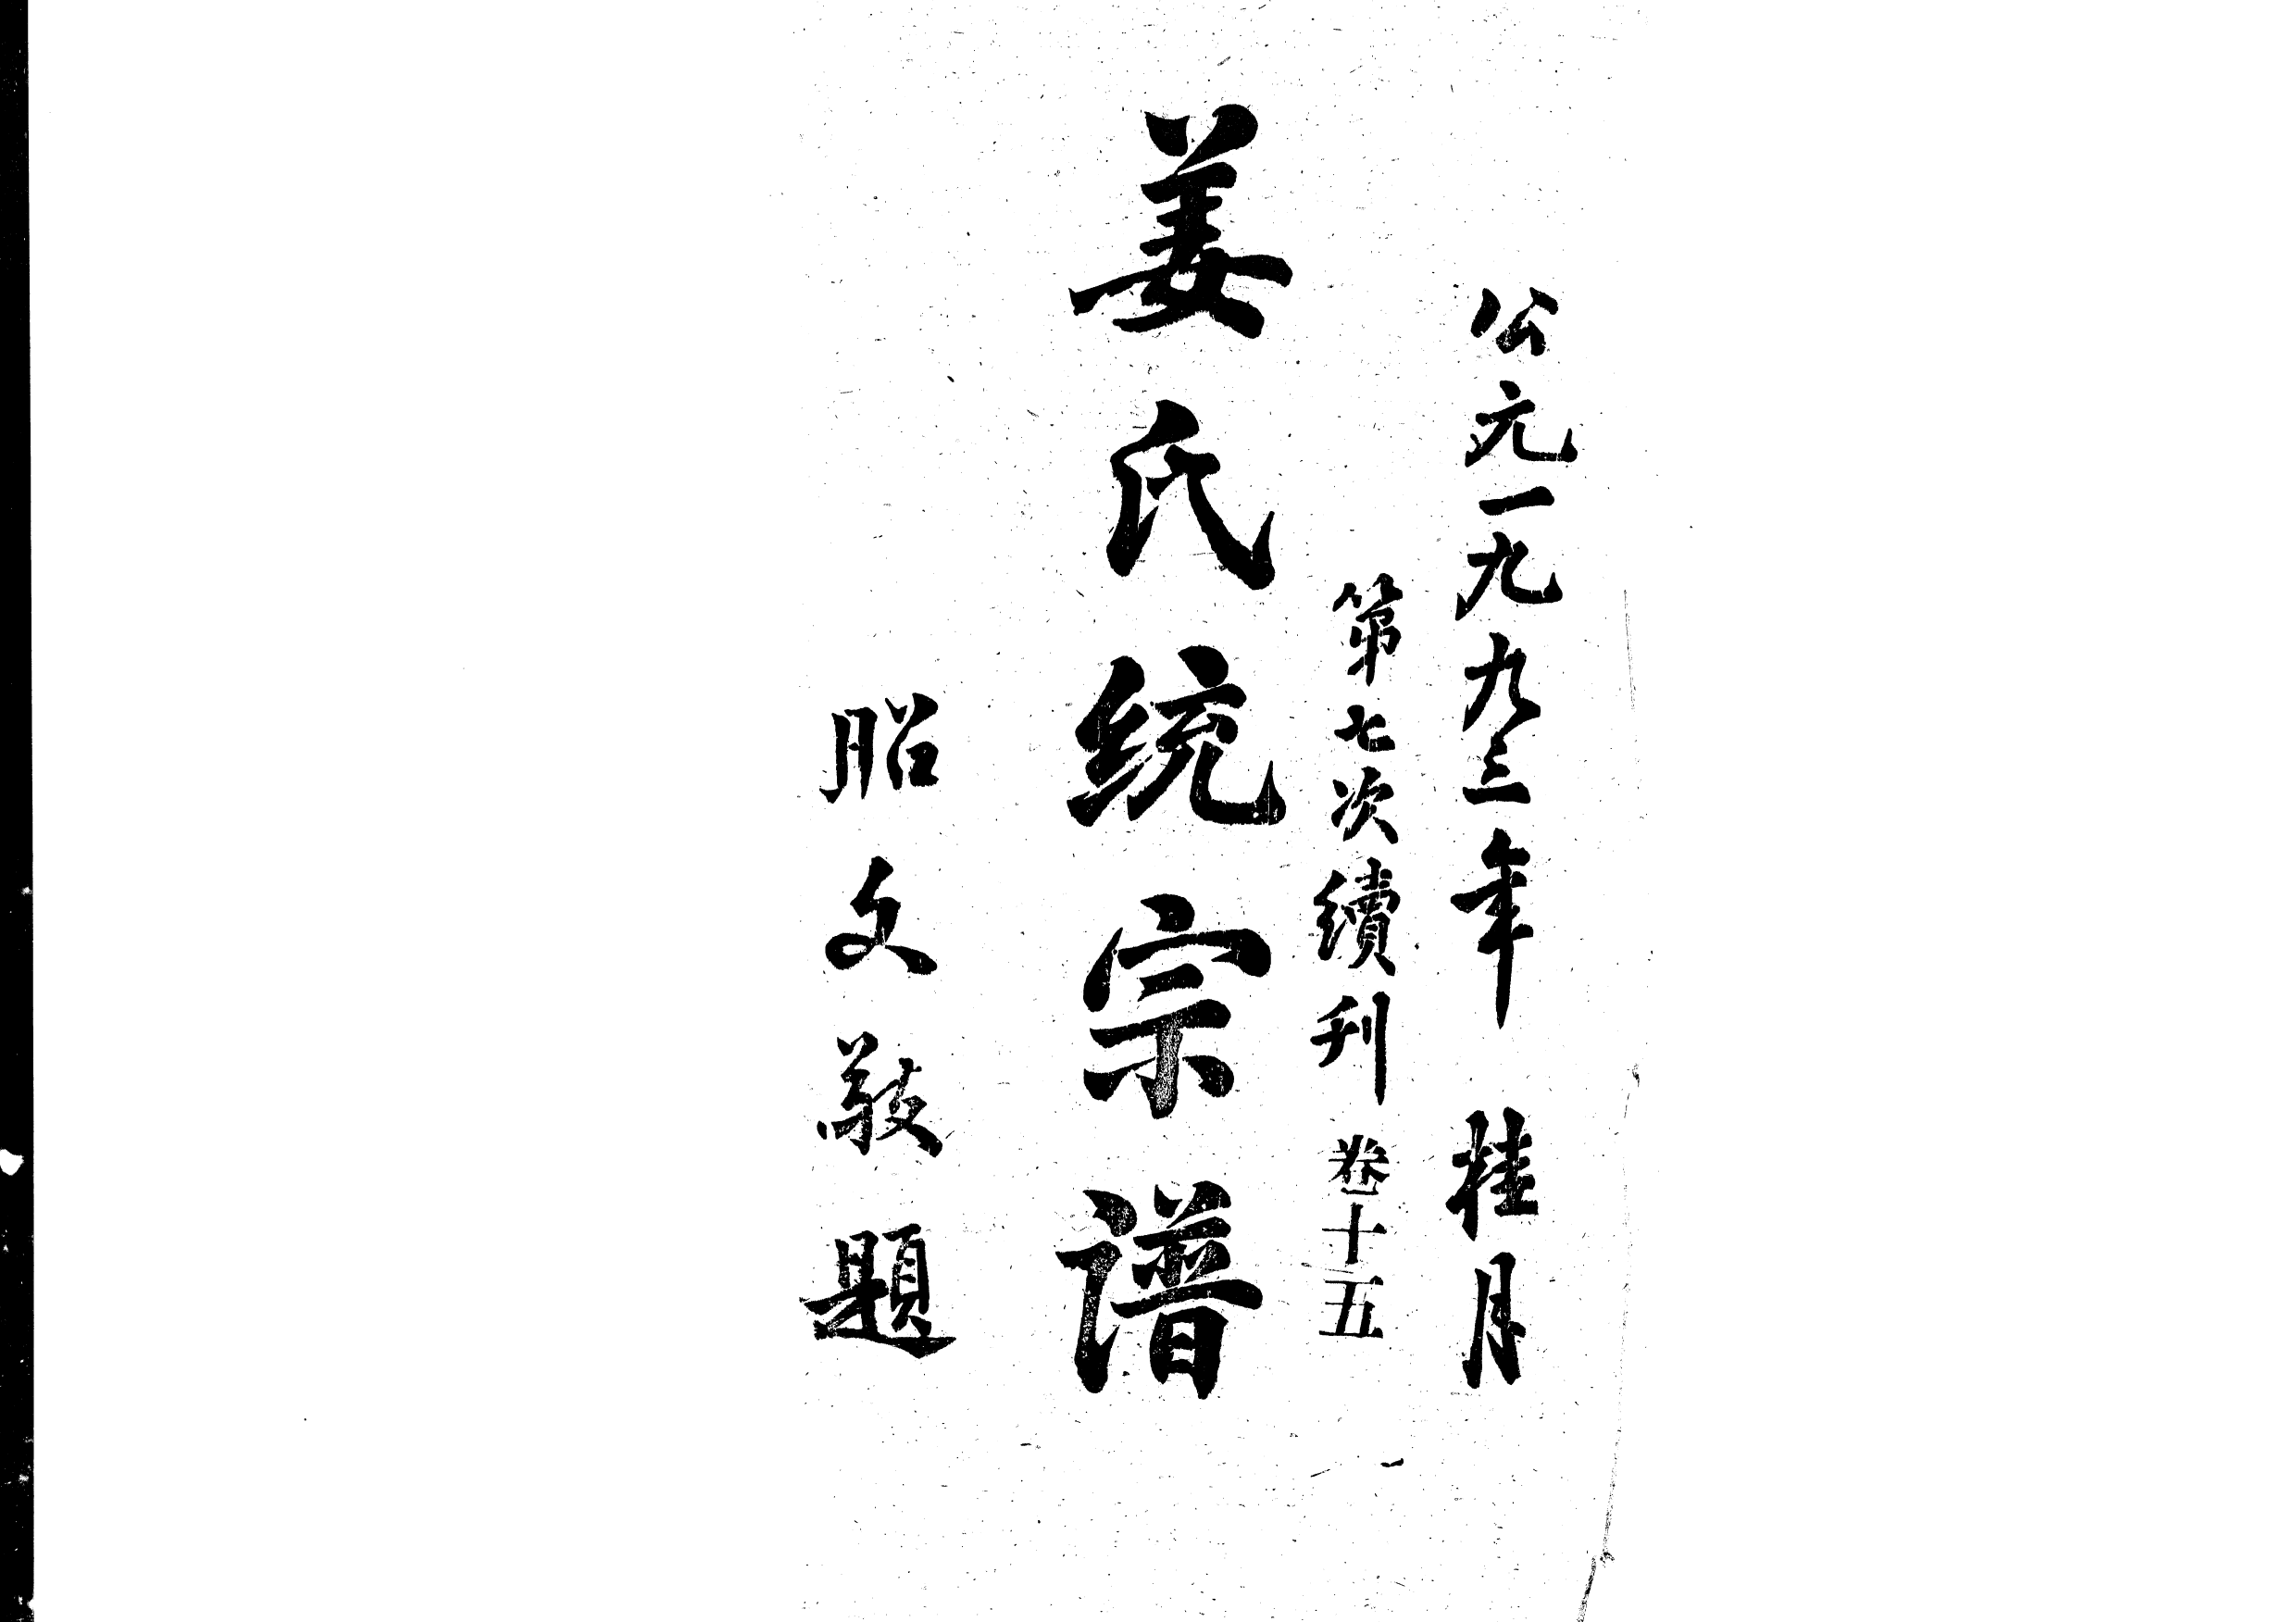 公元一九九三年 桂月
第七次續刊 卷十五
姜氏統宗譜
昭文敬題